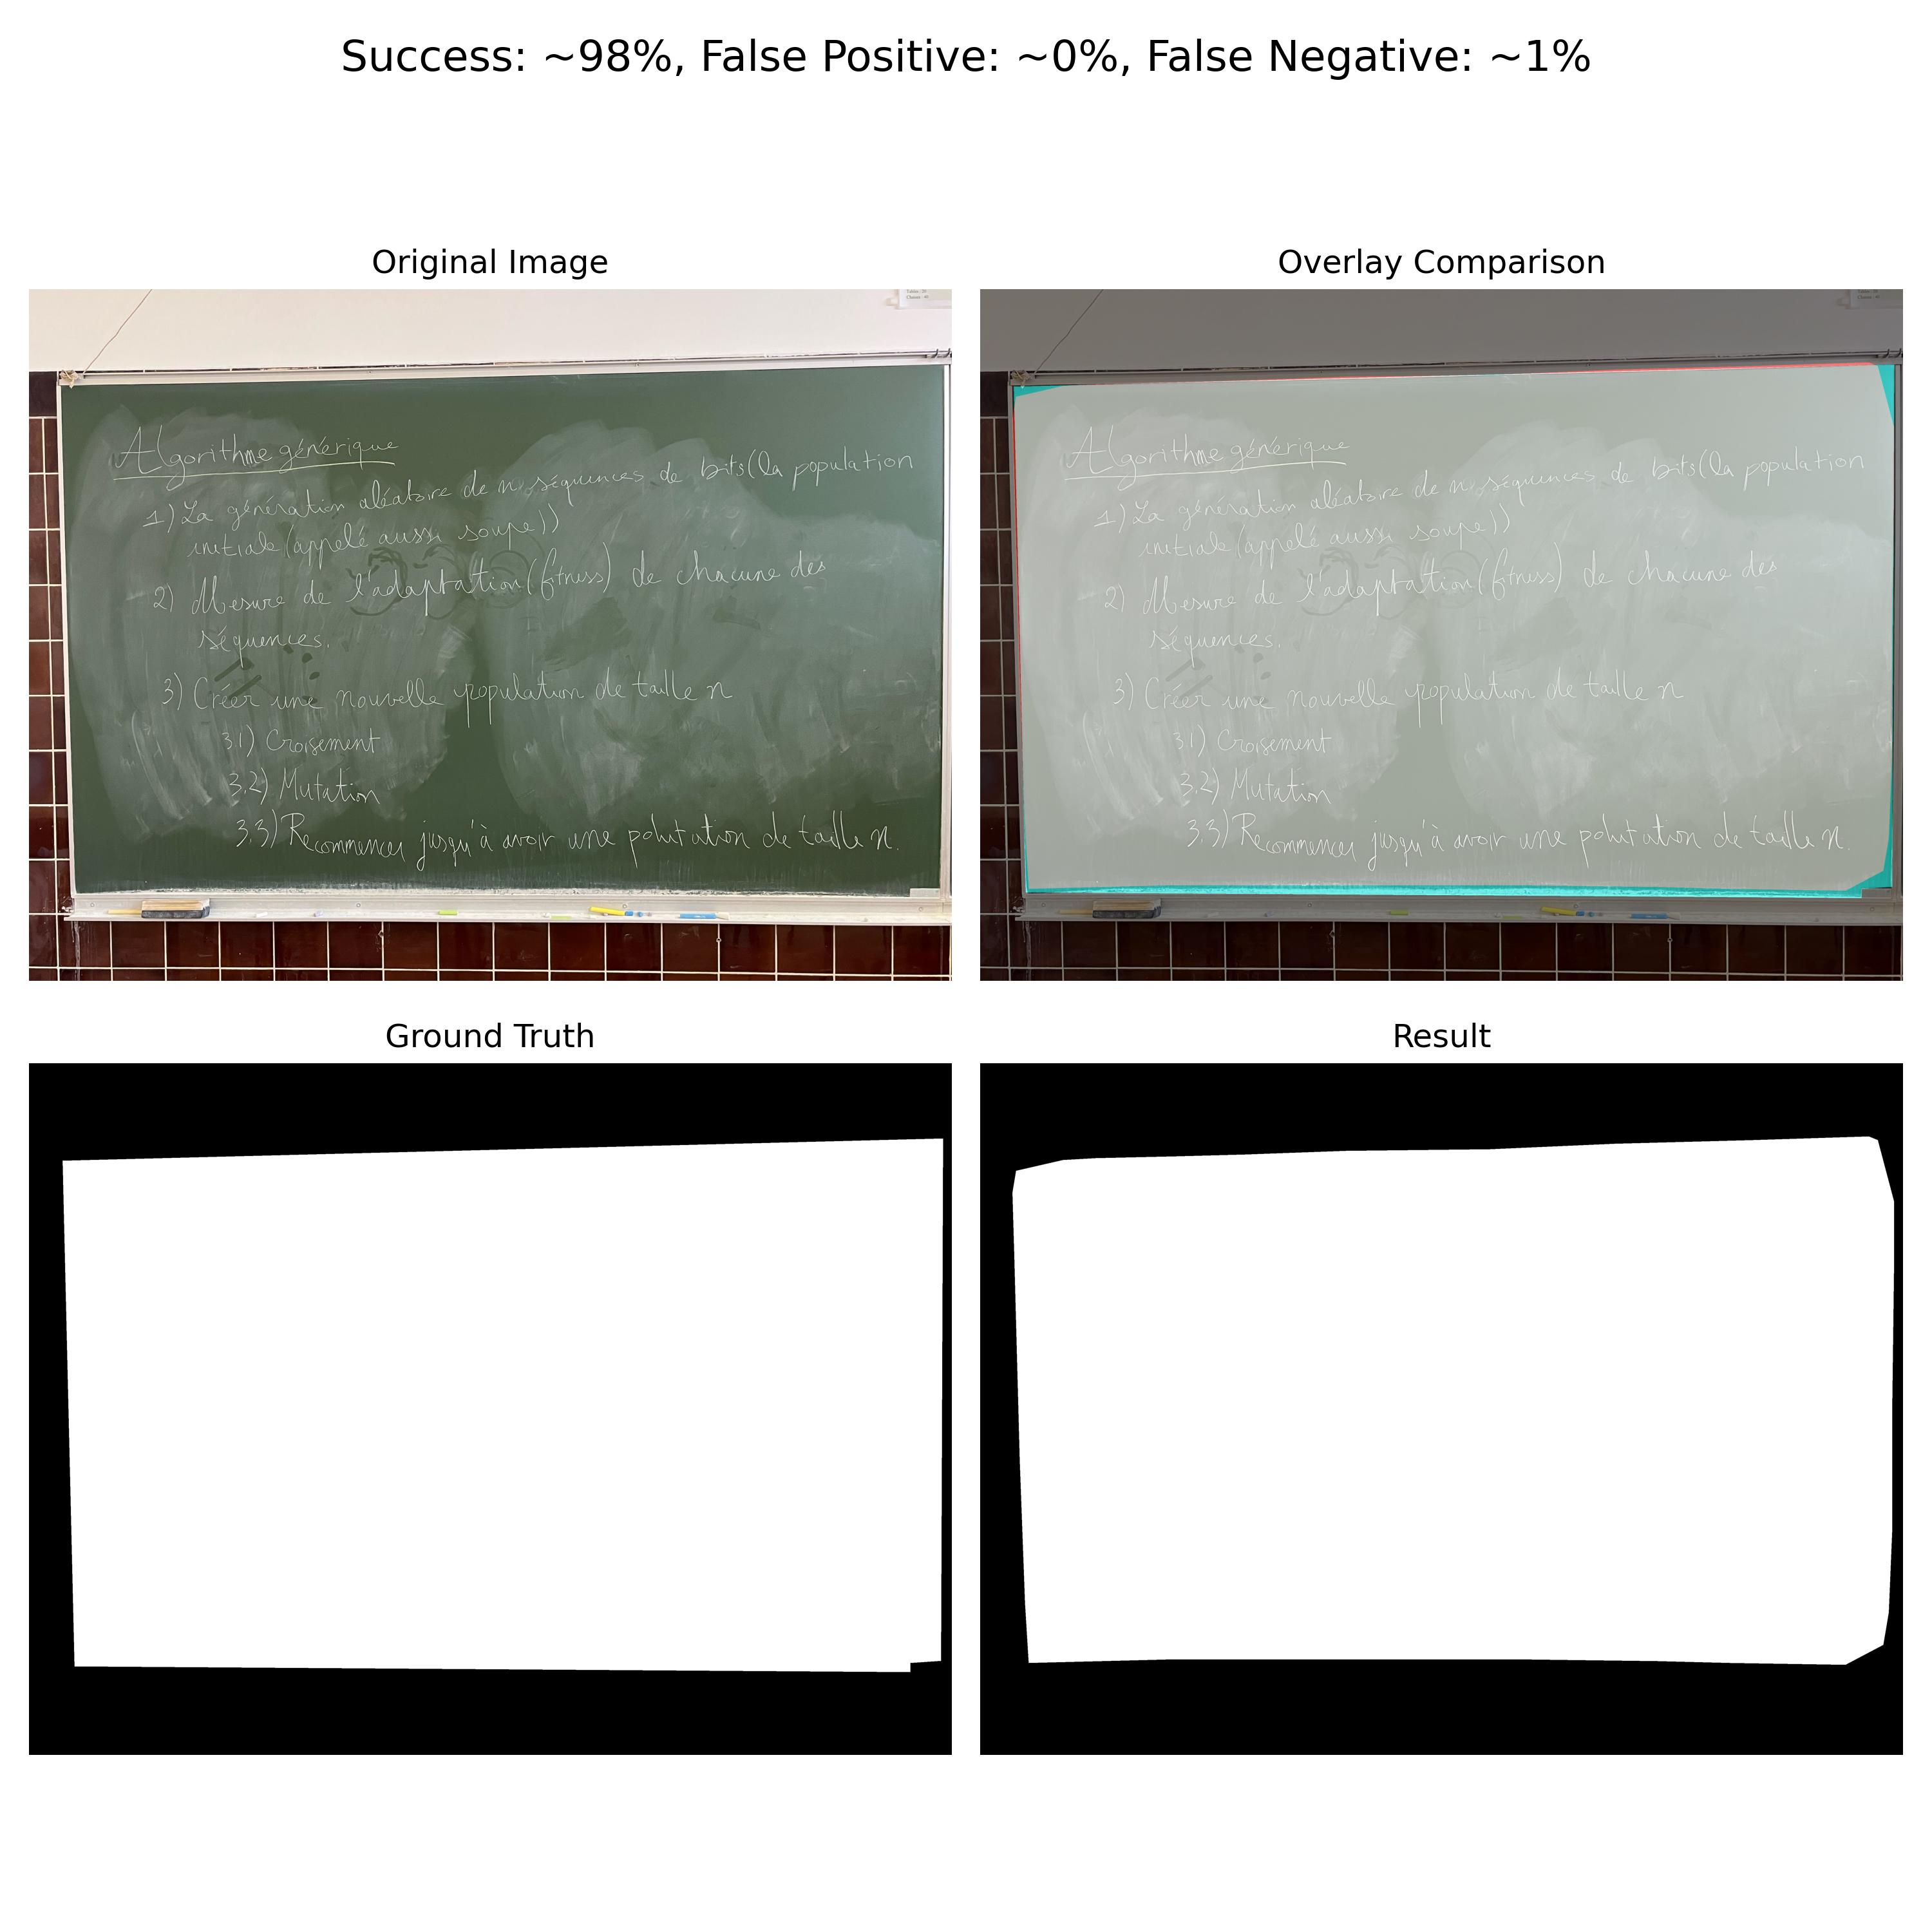 Success: ~98%, False Positive: ~0%, False Negative: ~1%
Original Image
Algorithme générique
1) La génération aléatoire de n séquences de bits (la population
initiale (appelé aussi soupe))
2) Mesure de l'adaptation (fitness) de chacune des
séquences.
3) Créer une nouvelle population de taille n
3.1) Croisement
3.2) Mutation
3.3) Recommencer jusqu'à avoir une polutation de taille n.
Overlay Comparison
Algorithme générique
1) La génération aléatoire de n séquences de bits (la population
initiale (appelé aussi soupe))
2) Mesure de l'adaptation (fitness) de chacune des
séquences.
3) Créer une nouvelle population de taille n
3.1) Croisement
3.2) Mutation
3.3) Recommencer jusqu'à avoir une polutation de taille n.
Ground Truth
Result